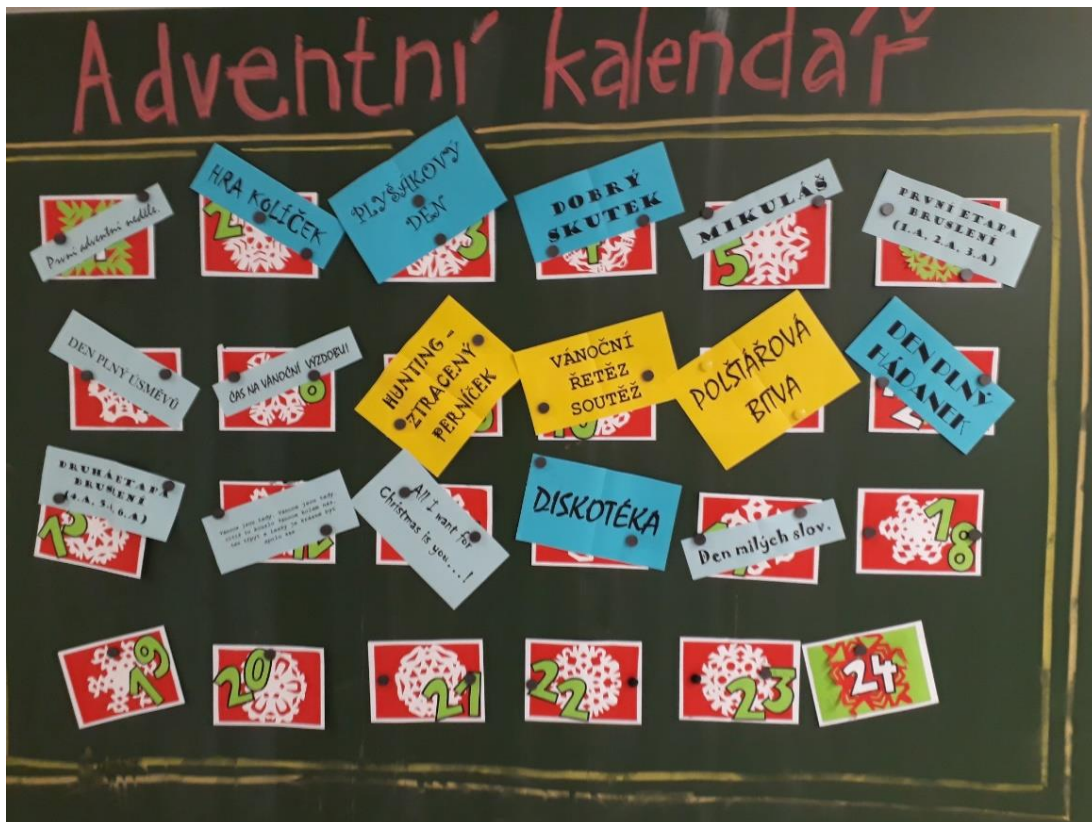 Adventní kalendář
První adventní neděle.
2
HRA KOLÍČEK
PLYŠÁKOVÝ
DEN
3
DOBRÝ
SKUTEK
MIKULÁŠ
5
PRVNÍ ETAPA
BRUSLENÍ
(1.A, 2.A, 3.A)
DEN PLNÝ ÚSMĚVŮ
ČAS NA VÁNOČNÍ VÝZDOBU!
8
HUNTING –
ZTRACENÝ
PERNÍČEK
VÁNOČNÍ
ŘETĚZ
SOUTĚŽ
10
POLŠTÁŘOVÁ
BITVA
DEN PLNÝ
HÁDANEK
2
DRUHÁ ETAPA
BRUSLENÍ
(4.A, 5., 6.A)
13
Vánoce jsou tady, Vánoce jsou tady
All I want for
Christmas is you...!
DISKOTÉKA
Den milých slov.
18
19
20
21
22
23
24